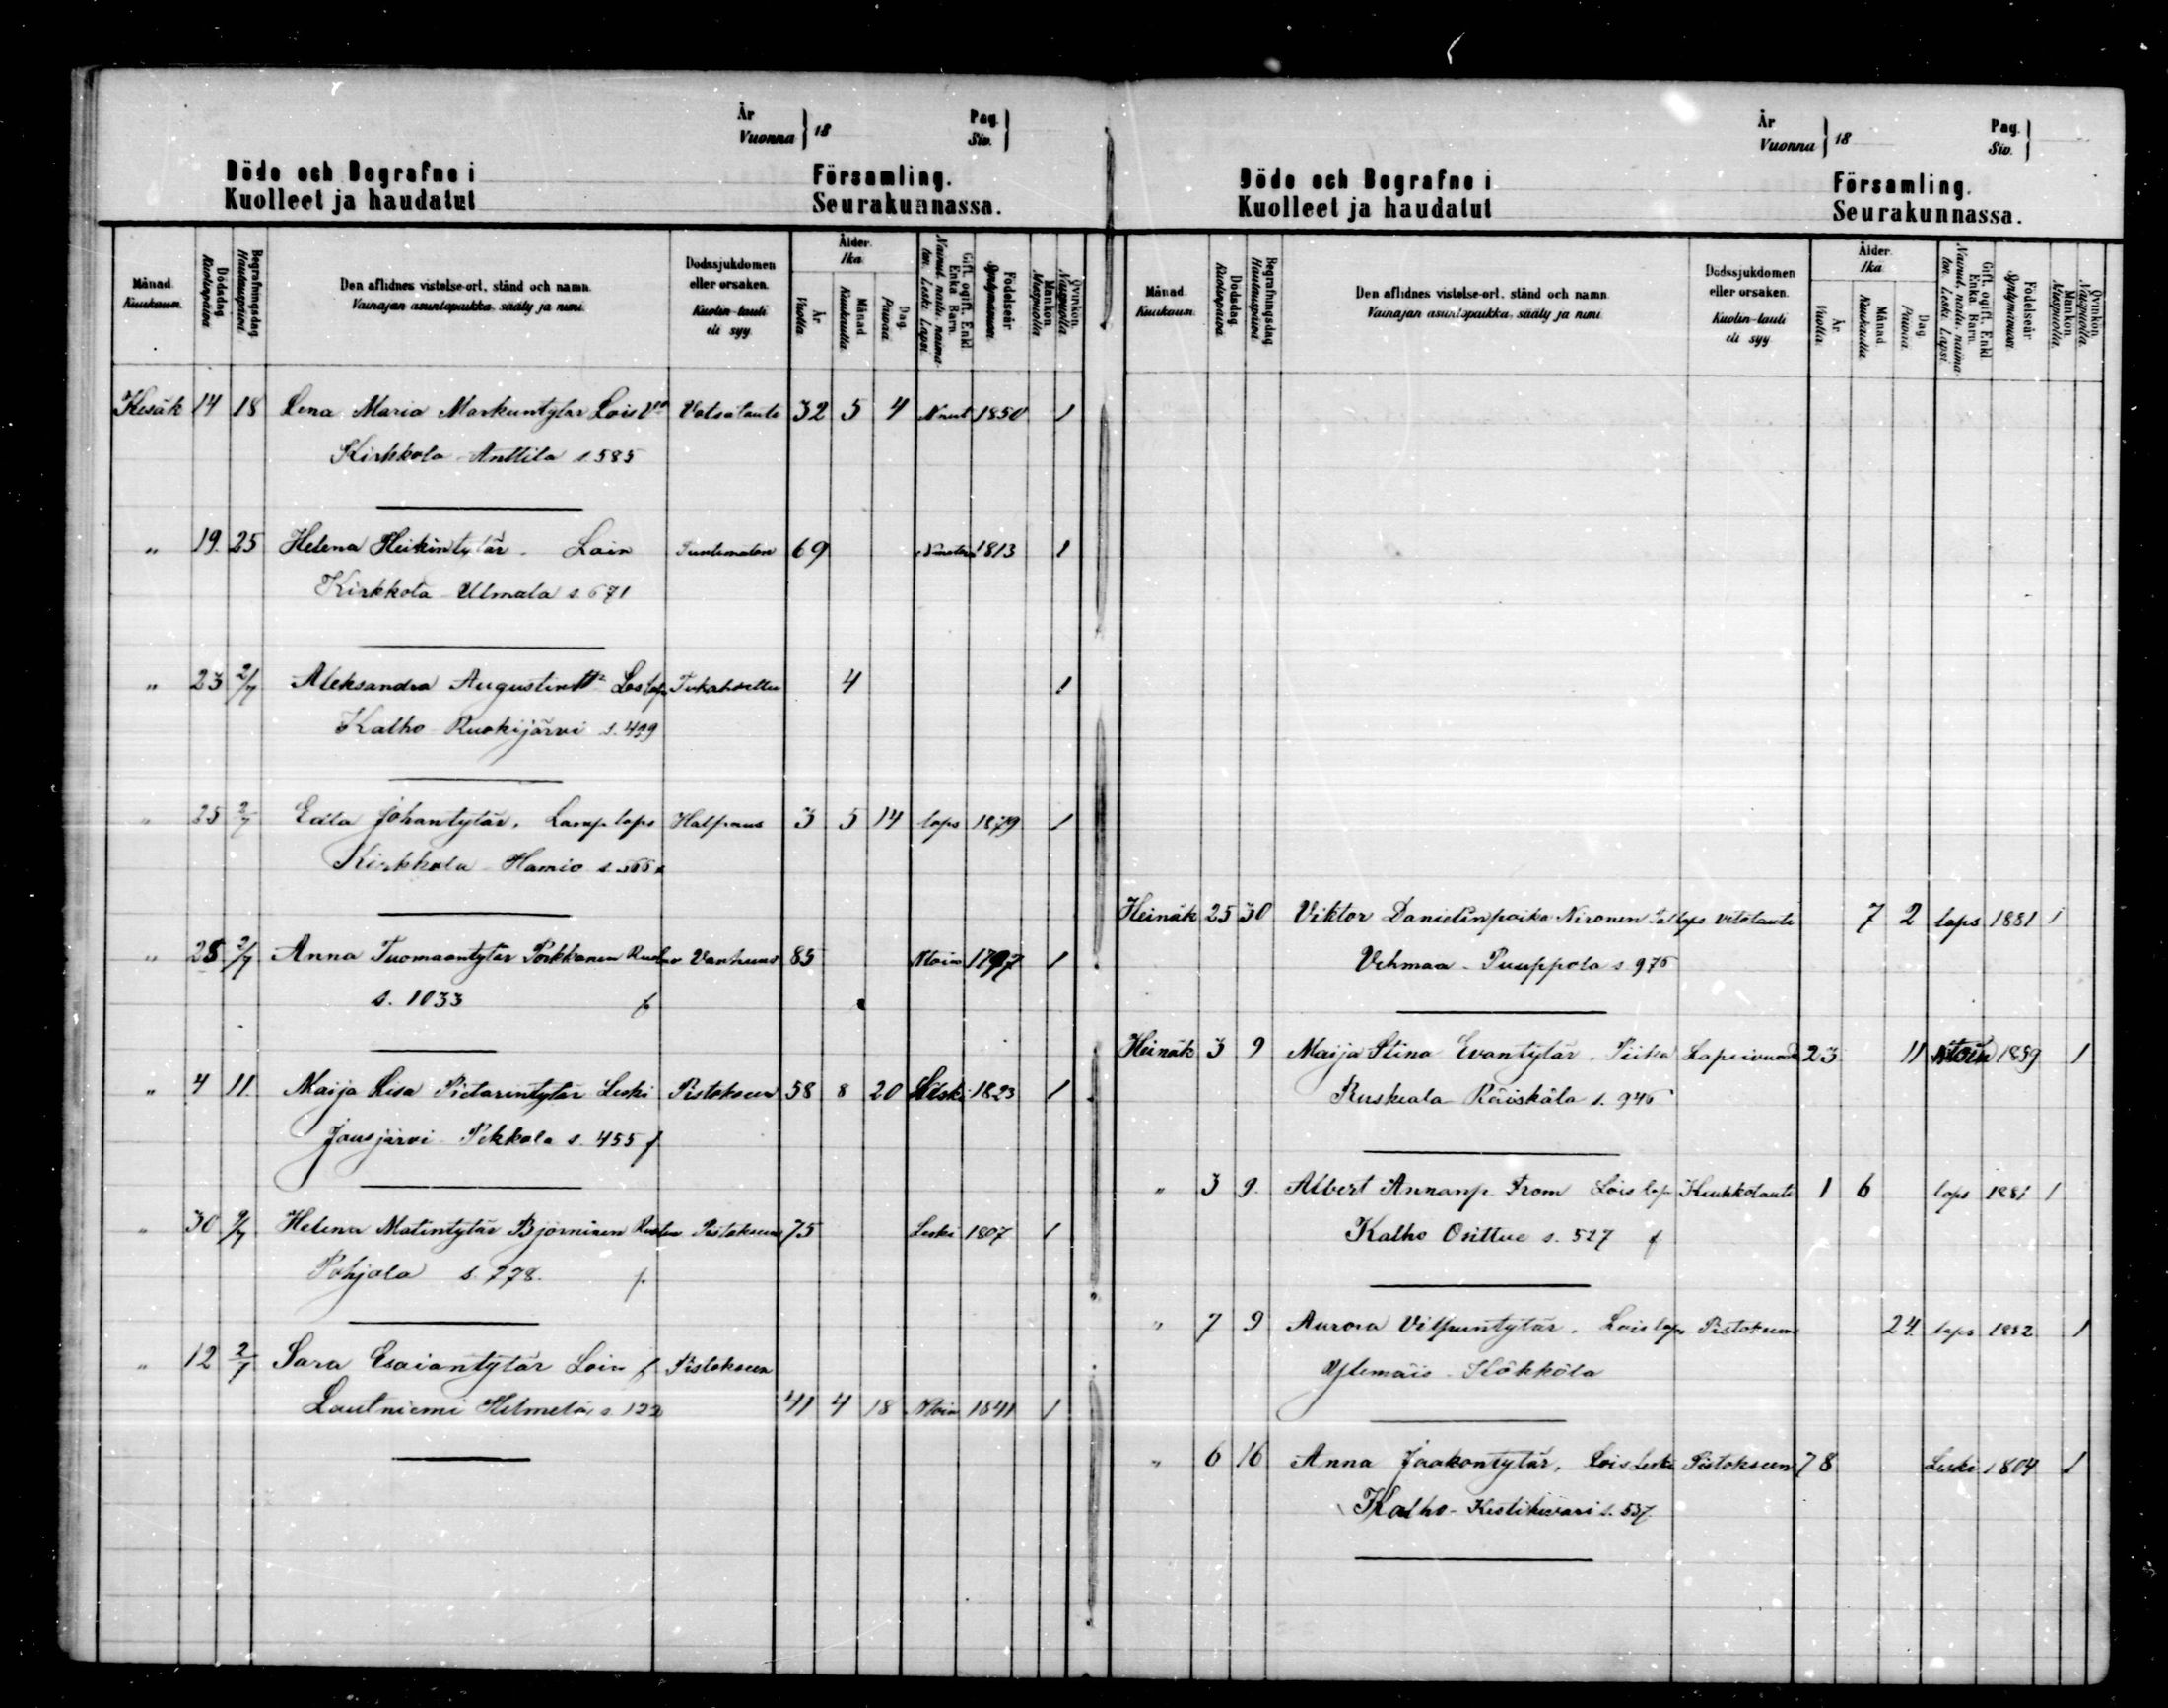 År
Vuonna } 18
Pag.
Siv. }
Döde och Begrafne i Församling.
Kuolleet ja haudatut Seurakunnassa.
Månad. Kuukausi.
Dödsdag. Kuolinpäivä.
Begrafningsdag. Hautauspäivä.
Den aflidnes vistelse-ort, stånd och namn.
Vainajan asuntopaikka, sääty ja nimi.
Dödssjukdomen eller orsaken.
Kuolin-tauti eli syy.
Ålder. Ikä.
År Vuotta. Månad. Kuukautta. Dag. Päivää.
Gift, ogift, Enkl. Enka. Barn.
Nainut, naitu, naimaton. Leski. Lapsi.
Födelseår. Syntymävuosi.
Mankön. Miespuolia.
Qvinkön. Naispuolia.
Kesäk 14 18 Lena Maria Markuntytär Lois Vatsatauti 32 5 4 Nnut 1850 1
Kirkkola Anttila s. 585
" 19. 25 Helena Heikintytär. Lois Tuntematon 69 1813 1
Kirkkola Ulmala s. 671
" 23 2/7 Aleksandra Augustin Lois laps 4 1
Kalho Ruokijärvi s. 499
" 25 2/7 Edla Johantytär. Lamp laps Halpaus 3 5 14 laps 1879 1
Kirkkola Hamio s. 566
" 28 2/7 Anna Tuomaantytär Porkkanen Vanhuus 85 Nloin 1797 1
s. 1033 f
" 4 11. Maija Lisa Pietarintytär Leski Pistokseen 58 8 20 Leski 1823 1
Jausjärvi Pekkala s. 455 f
" 30 9/7 Helena Matintytär Björninen Pistokseen 75 Leski 1807 1
Pohjola s. 778. f.
" 12 2/7 Sara Esaiantytär Lois f Pistokseen
Lautniemi Helmelä s. 122 41 4 18 Nloin 1841 1
År
Vuonna } 18
Pag.
Siv. }
Döde och Begrafne i Församling.
Kuolleet ja haudatut Seurakunnassa.
Månad. Kuukausi.
Dödsdag. Kuolinpäivä.
Begrafningsdag. Hautauspäivä.
Den aflidnes vistelse-ort, stånd och namn.
Vainajan asuntopaikka, sääty ja nimi.
Dödssjukdomen eller orsaken.
Kuolin-tauti eli syy.
Ålder. Ikä.
År Vuotta. Månad. Kuukautta. Dag. Päivää.
Gift, ogift, Enkl. Enka. Barn.
Nainut, naitu, naimaton. Leski. Lapsi.
Födelseår. Syntymävuosi.
Mankön. Miespuolia.
Qvinkön. Naispuolia.
Heinäk 25 30 Viktor Danielinpoika Nironen Tal laps 7 2 laps 1881 1
Vehmaa - Puuppola s. 976
Heinäk 3 9 Maija Stina Evantytär. Piika 23 11 1859 1
Ruskeala Räiskälä s. 946
" 3 9. Albert Annanp. From Lois lap Kuuhkotauti 1 6 laps 1881 1
Kalho Osittue s. 527 f
" 7 9 Aurora Vilpuntytär. Lois laps Pistokseen 24. laps 1882 1
Ylemäis - Kökkölä
" 6 16 Anna Jaakontytär, Lois Leski Pistokseen 78 Leski 1804 1
Kalho - Kestikievari s. 537